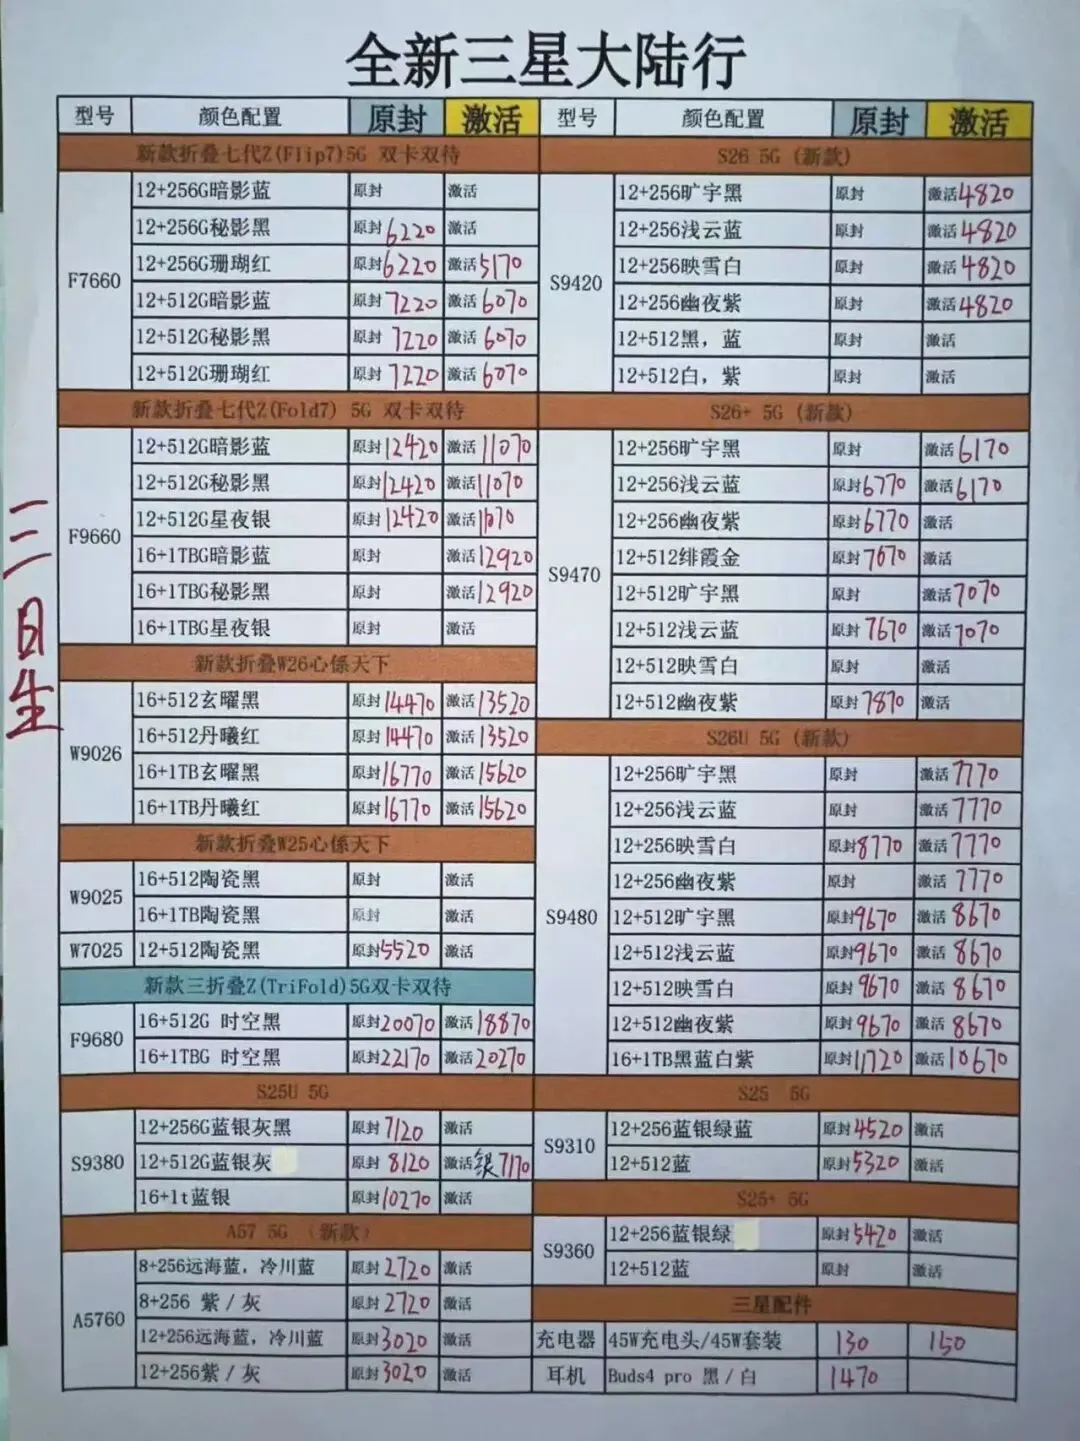 全新三星大陆行
型号 颜色配置 原封 激活
新款折叠七代Z(Flip7)5G 双卡双待
F7660
12+256G暗影蓝 原封 激活
12+256G秘影黑 原封6220 激活
12+256G珊瑚红 原封6220 激活5170
12+512G暗影蓝 原封7220 激活6070
12+512G秘影黑 原封7220 激活6070
12+512G珊瑚红 原封7220 激活6070
新款折叠七代Z(Fold7) 5G 双卡双待
F9660
12+512G暗影蓝 原封12420 激活11070
12+512G秘影黑 原封12420 激活11070
12+512G星夜银 原封12420 激活11070
16+1TBG暗影蓝 原封 激活12920
16+1TBG秘影黑 原封 激活12920
16+1TBG星夜银 原封 激活
新款折叠W26心係天下
W9026
16+512玄曜黑 原封14470 激活13520
16+512丹曦红 原封14470 激活13520
16+1TB玄曜黑 原封16770 激活15620
16+1TB丹曦红 原封16770 激活15620
新款折叠W25心係天下
W9025
16+512陶瓷黑 原封 激活
16+1TB陶瓷黑 原封 激活
W7025 12+512陶瓷黑 原封5520 激活
新款三折叠Z(TriFold)5G双卡双待
F9680
16+512G 时空黑 原封20070 激活18870
16+1TBG 时空黑 原封22170 激活20270
S25U 5G
S9380
12+256G蓝银灰黑 原封7120 激活
12+512G蓝银灰 原封8120 激活银7170
16+1t蓝银 原封10270 激活
A57 5G （新款）
A5760
8+256远海蓝，冷川蓝 原封2720 激活
8+256 紫／灰 原封2720 激活
12+256远海蓝，冷川蓝 原封3020 激活
12+256紫／灰 原封3020 激活
型号 颜色配置 原封 激活
S26 5G (新款)
S9420
12+256旷宇黑 原封 激活4820
12+256浅云蓝 原封 激活4820
12+256映雪白 原封 激活4820
12+256幽夜紫 原封 激活4820
12+512黑，蓝 原封 激活
12+512白，紫 原封 激活
S26+ 5G (新款)
S9470
12+256旷宇黑 原封 激活6170
12+256浅云蓝 原封6770 激活6170
12+256幽夜紫 原封6770 激活
12+512绯霞金 原封7670 激活
12+512旷宇黑 原封 激活7070
12+512浅云蓝 原封7670 激活7070
12+512映雪白 原封 激活
12+512幽夜紫 原封7870 激活
S26U 5G (新款)
S9480
12+256旷宇黑 原封 激活7770
12+256浅云蓝 原封 激活7770
12+256映雪白 原封8770 激活7770
12+256幽夜紫 原封 激活7770
12+512旷宇黑 原封9670 激活8670
12+512浅云蓝 原封9670 激活8670
12+512映雪白 原封9670 激活8670
12+512幽夜紫 原封9670 激活8670
16+1TB黑蓝白紫 原封11720 激活10670
S25 5G
S9310
12+256蓝银绿蓝 原封4520 激活
12+512蓝 原封5320 激活
S25+ 5G
S9360
12+256蓝银绿 原封5420 激活
12+512蓝 原封 激活
三星配件
充电器 45W充电头/45W套装 130 150
耳机 Buds4 pro 黑／白 1470